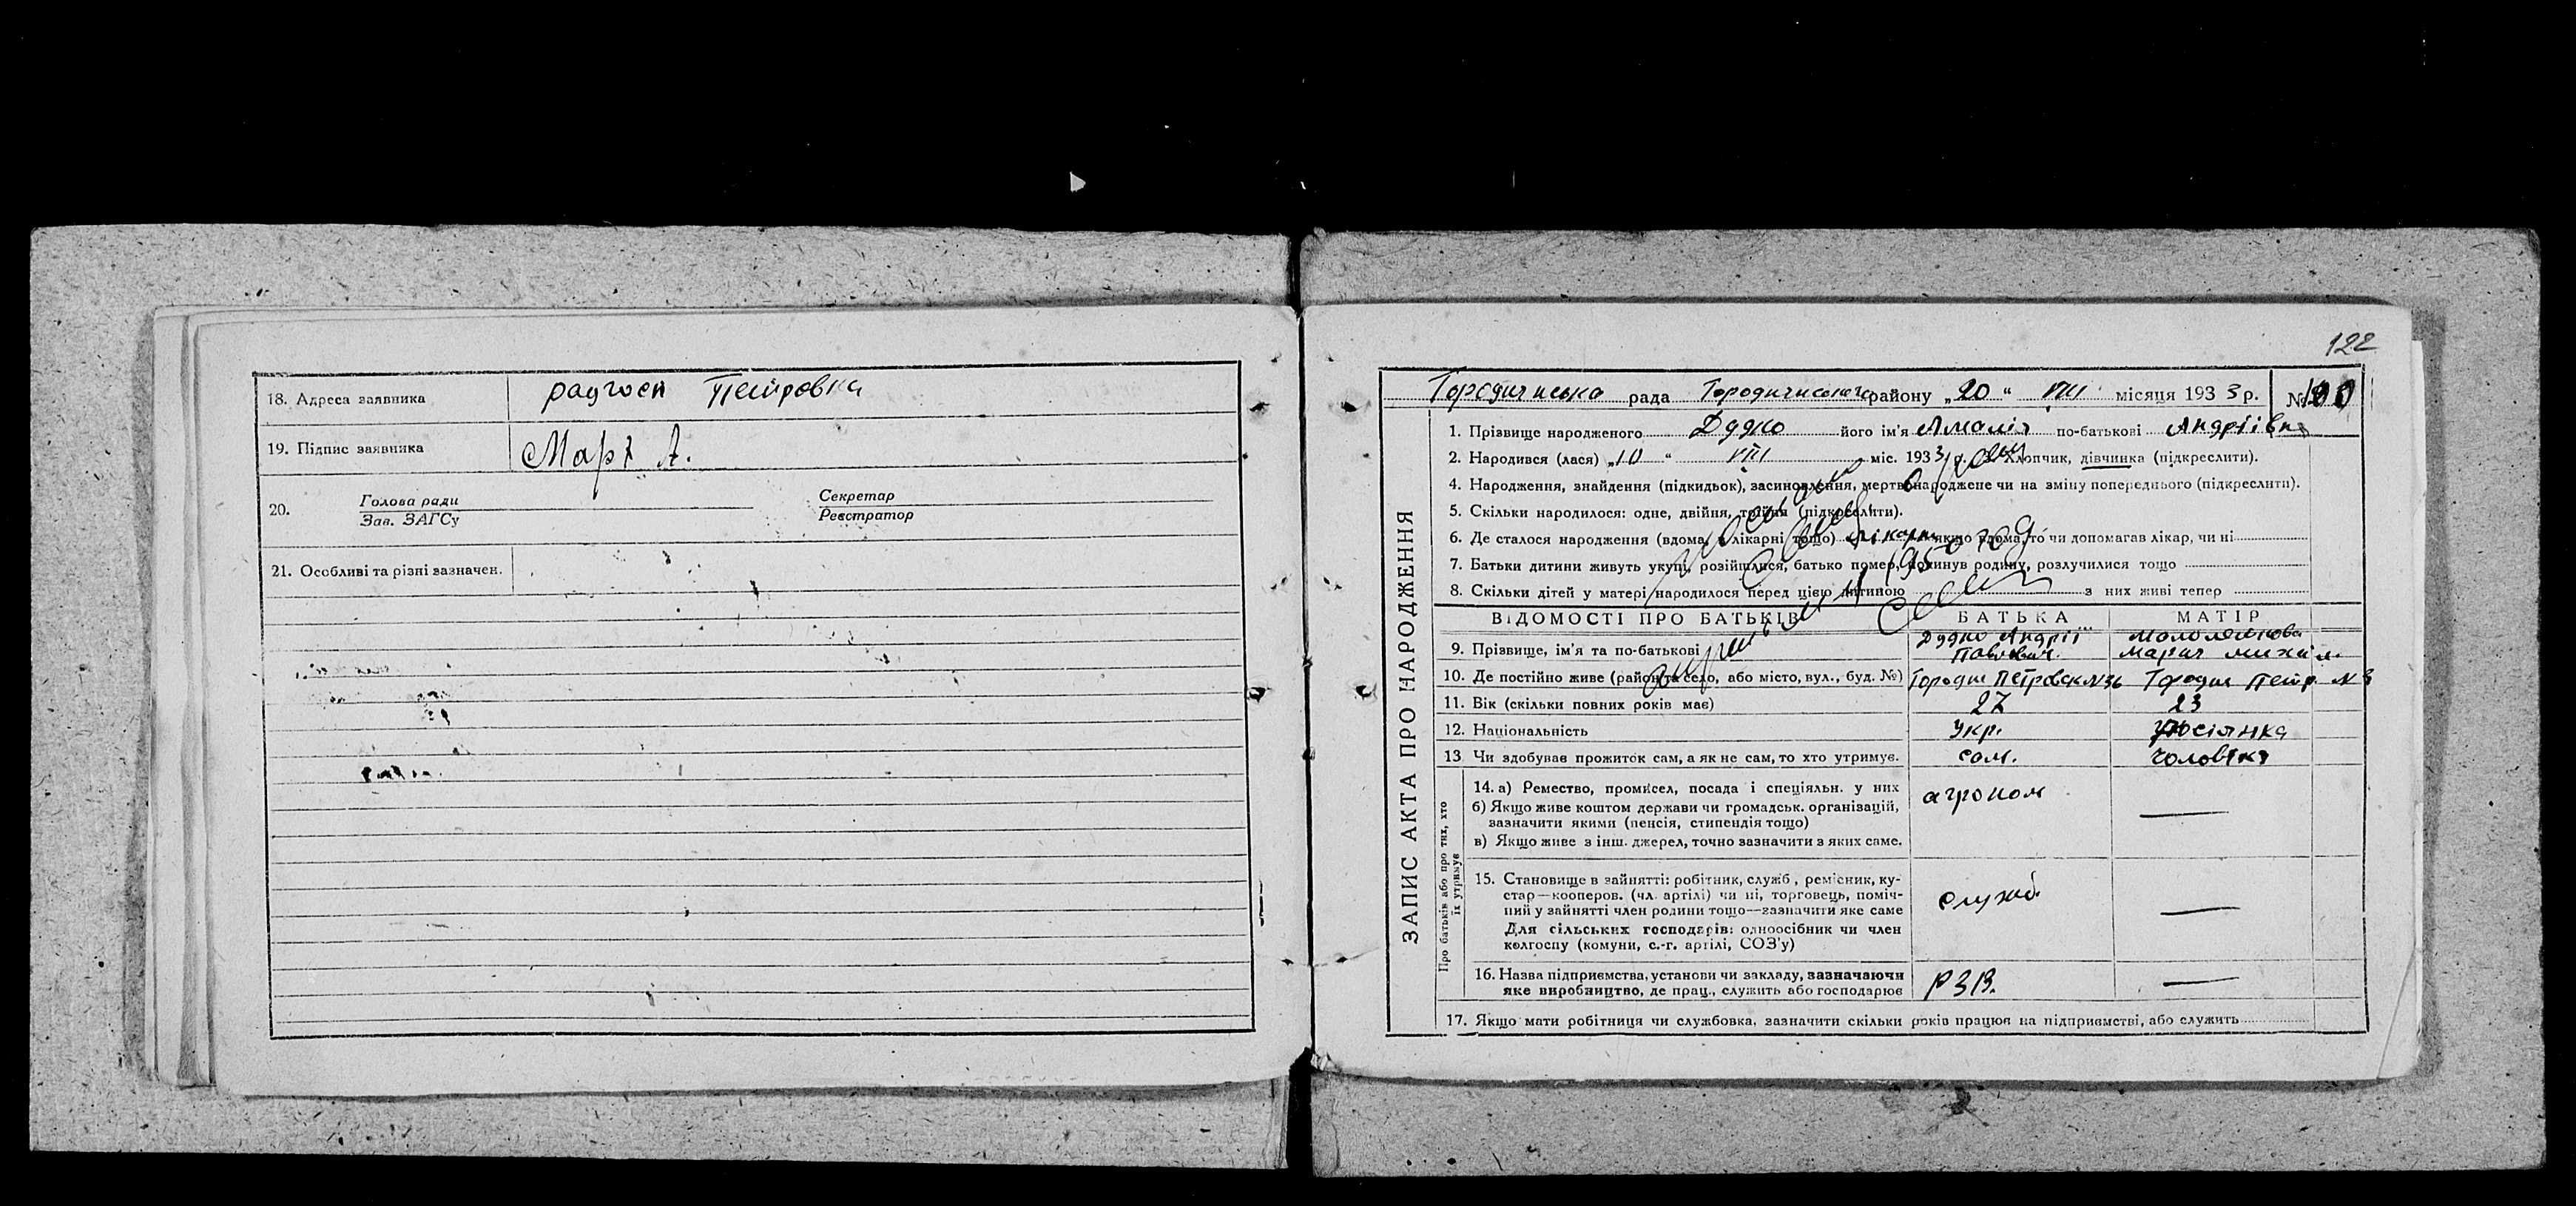 18. Адреса заявника радгосп Петровка
19. Підпис заявника Марх А.
20. Голова ради Секретар
Зав. ЗАГСу Реєстратор
21. Особливі та різні зазначен.
122
ЗАПИС АКТА ПРО НАРОДЖЕННЯ
Городиська рада району „20 “ VIII місяця 1933 р. №
1. Прізвище народженого Дудко його ім'я Амалія по-батькові Андріївна
2. Народився (лася) „10 “ VIII міс. 1933 р. 3. Хлопчик, дівчинка (підкреслити).
4. Народження, знайдення (підкидьок), засиновлення, мертвонароджене чи на зміну попереднього (підкреслити).
5. Скільки народилося: одне, двійня, трійня (підкреслити).
6. Де сталося народження (вдома, в лікарні тощо) лікарні якщо вдома, то чи допомагав лікар, чи ні
7. Батьки дитини живуть укупі, розійшлися, батько помер, покинув родину, розлучилися тощо
8. Скільки дітей у матері народилося перед цією дитиною з них живі тепер
ВІДОМОСТІ ПРО БАТЬКІВ БАТЬКА МАТІР
9. Прізвище, ім'я та по-батькові Дудко Андрій Павлович Мария Михайл.
10. Де постійно живе (район та село, або місто, вул., буд. №) Городищ Петровск Городищ Петр.
11. Вік (скільки повних років має) 27 23
12. Національність Укр.
13. Чи здобував прожиток сам, а як не сам, то хто утримує. сам. чоловік
Про батьків або про тих, хто їх утримує
14. а) Ремество, промисел, посада і спеціяльн. у них агроном —
б) Якщо живе коштом держави чи громадськ. організацій,
зазначити якими (пенсія, стипендія тощо)
в) Якщо живе з інш. джерел, точно зазначити з яких саме.
15. Становище в зайнятті: робітник, служб., ремісник, ку-
стар—кооперов. (чл. артілі) чи ні, торговець, поміч- служб. —
ний у зайнятті член родини тощо—зазначити яке саме
Для сільських господарів: одноосібник чи член
колгоспу (комуни, с.-г. артілі, СОЗ'у)
16. Назва підприємства, установи чи закладу, зазначаючи РЗВ. —
яке виробництво, де прац., служить або господарює
17. Якщо мати робітниця чи службовка, зазначити скільки років працює на підприємстві, або служить